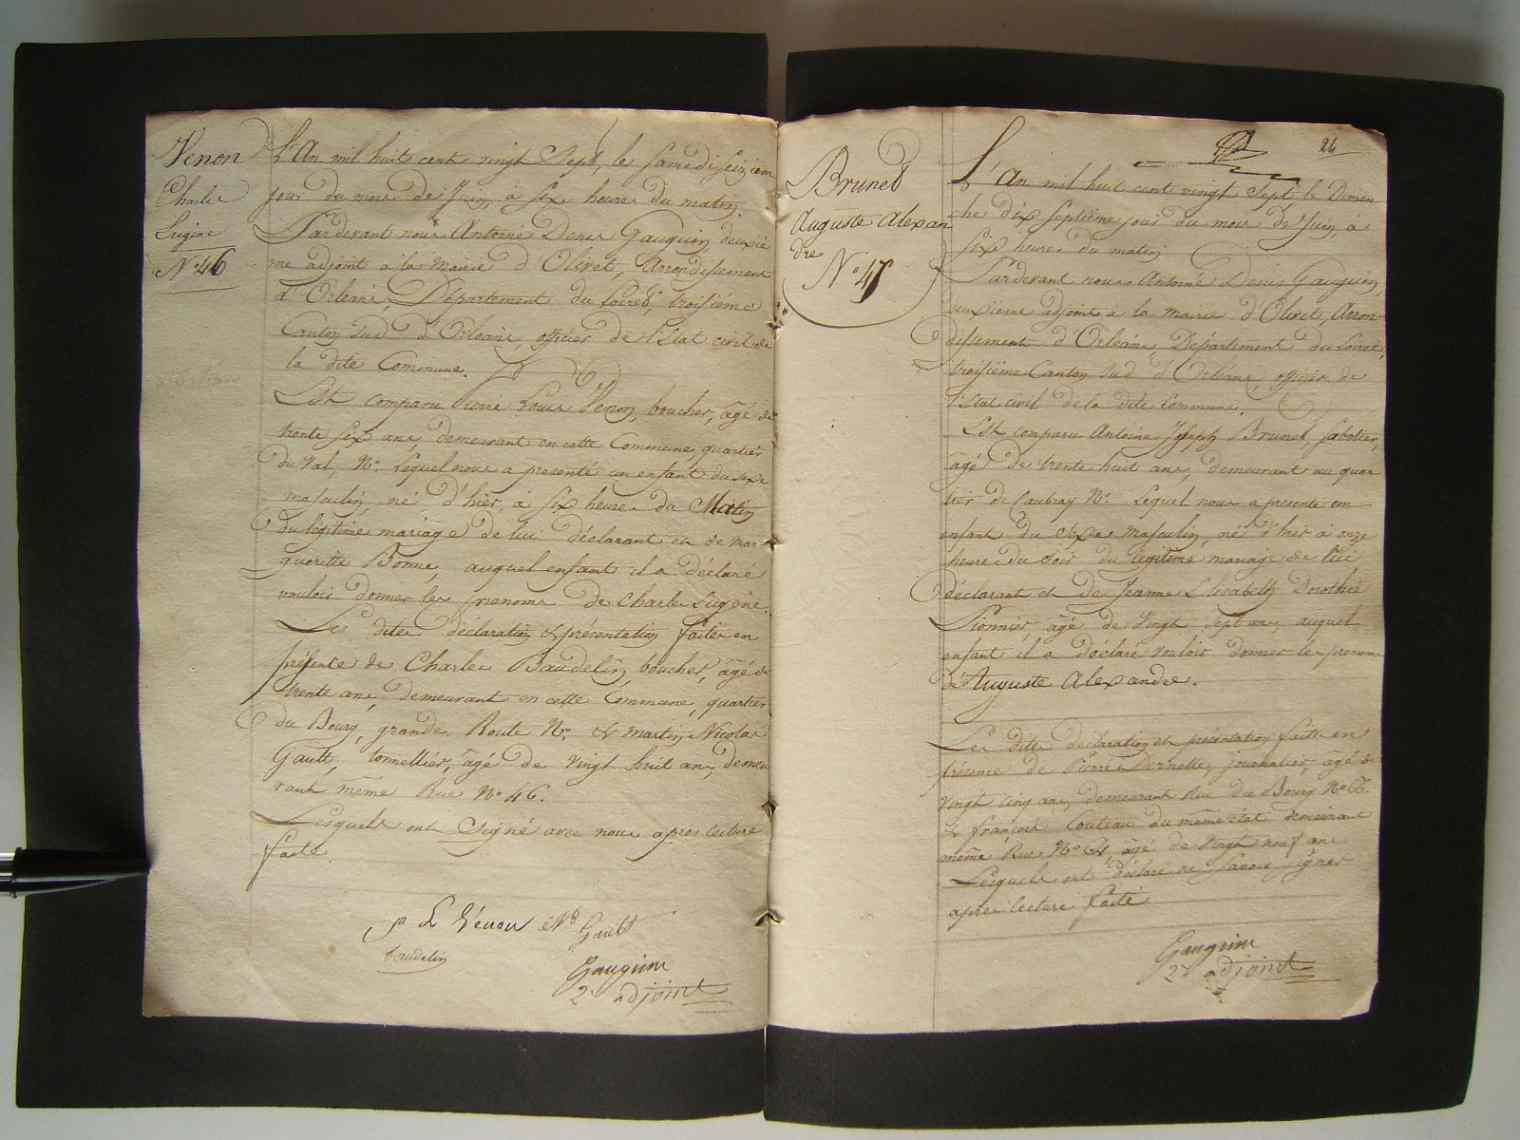 Venon
Charles
Eugène
N° 46
L'An mil huit cent vingt Sept, le samedi seizième
jour du mois de Juin, à six heures du matin.
Pardevant nous Antoine Denis Gauguin, deuxiè
me adjoint à la mairie d'Olivet, Arrondissement
d'Orléans, Département du Loiret, troisième
Canton Sud d'Orléans, officier de l'Etat civil de
la dite Commune.
Est comparu Pierre Louis Venon, boucher, âgé de
trente six ans, demeurant en cette Commune, quartier
du Val, N°. Lequel nous a présenté un enfant du sexe
masculin, né d'hier, à six heures du Matin
du légitime mariage de lui déclarant et de Mar
guerite Bonne, auquel enfant il a déclaré
vouloir donner les prénoms de Charles Eugène.
Les dites déclaration & présentation faites en
présence de Charles Baudelin, boucher, âgé de
trente ans, demeurant en cette Commune, quartier
du Bourg, grande Route N°. & Martin Nicolas
Gault, tonnellier, âgé de vingt huit ans, demeu
rant même Rue N° 46.
Lesquels ont Signé avec nous après lecture
faite.
P L Venon N^d Gault
Baudelin
Gauguin
2^e adjoint
26
Brunet
Auguste Alexan
dre
N° 47
L'An mil huit cent vingt Sept le Diman
che dix septième jour du mois de Juin, à
six heures du matin
Pardevant nous Antoine Denis Gauguin,
deuxième adjoint à la mairie d'Olivet, Arron
dissement d'Orléans, Département du Loiret,
troisième Canton Sud d'Orléans, officier de
l'Etat civil de la dite Commune.
Est comparu Antoine Joseph Brunet, sabotier,
âgé de trente huit ans, demeurant au quar
tier de Caubray N°. Lequel nous a présenté un
enfant du sexe masculin, né d'hier à onze
heures du soir du légitime mariage de lui
déclarant et de Jeanne Elisabeth Dorothée
Pionnier, âgé de vingt sept ans, auquel
enfant il a déclaré vouloir donner les prénoms
de Auguste Alexandre.
Les dites déclaration et présentation faites en
présence de Pierre Dernette, journalier, âgé de
vingt cinq ans, demeurant Rue du Bourg N°
& françois Couteau du même état demeurant
même Rue N° âgé de vingt neuf ans
Lesquels ont déclaré ne savoir signer
après lecture faite
Gauguin
2^e adjoint